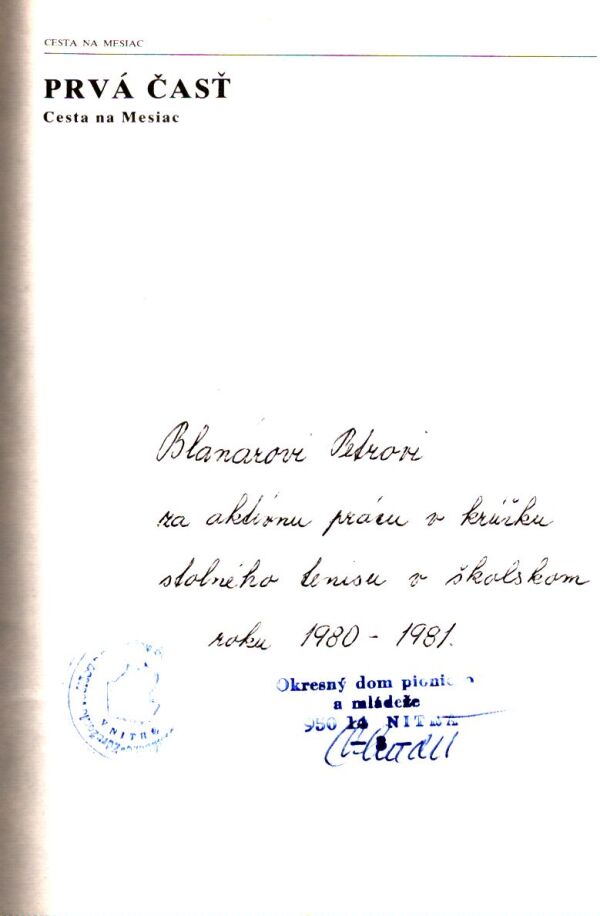 CESTA NA MESIAC
PRVÁ ČASŤ
Cesta na Mesiac
Blanárovi Petrovi
za aktívnu prácu v krúžku
stolného tenisu v školskom
roku 1980 - 1981.
Okresný dom
a mládeže
950 14 NITRA
V NITRE